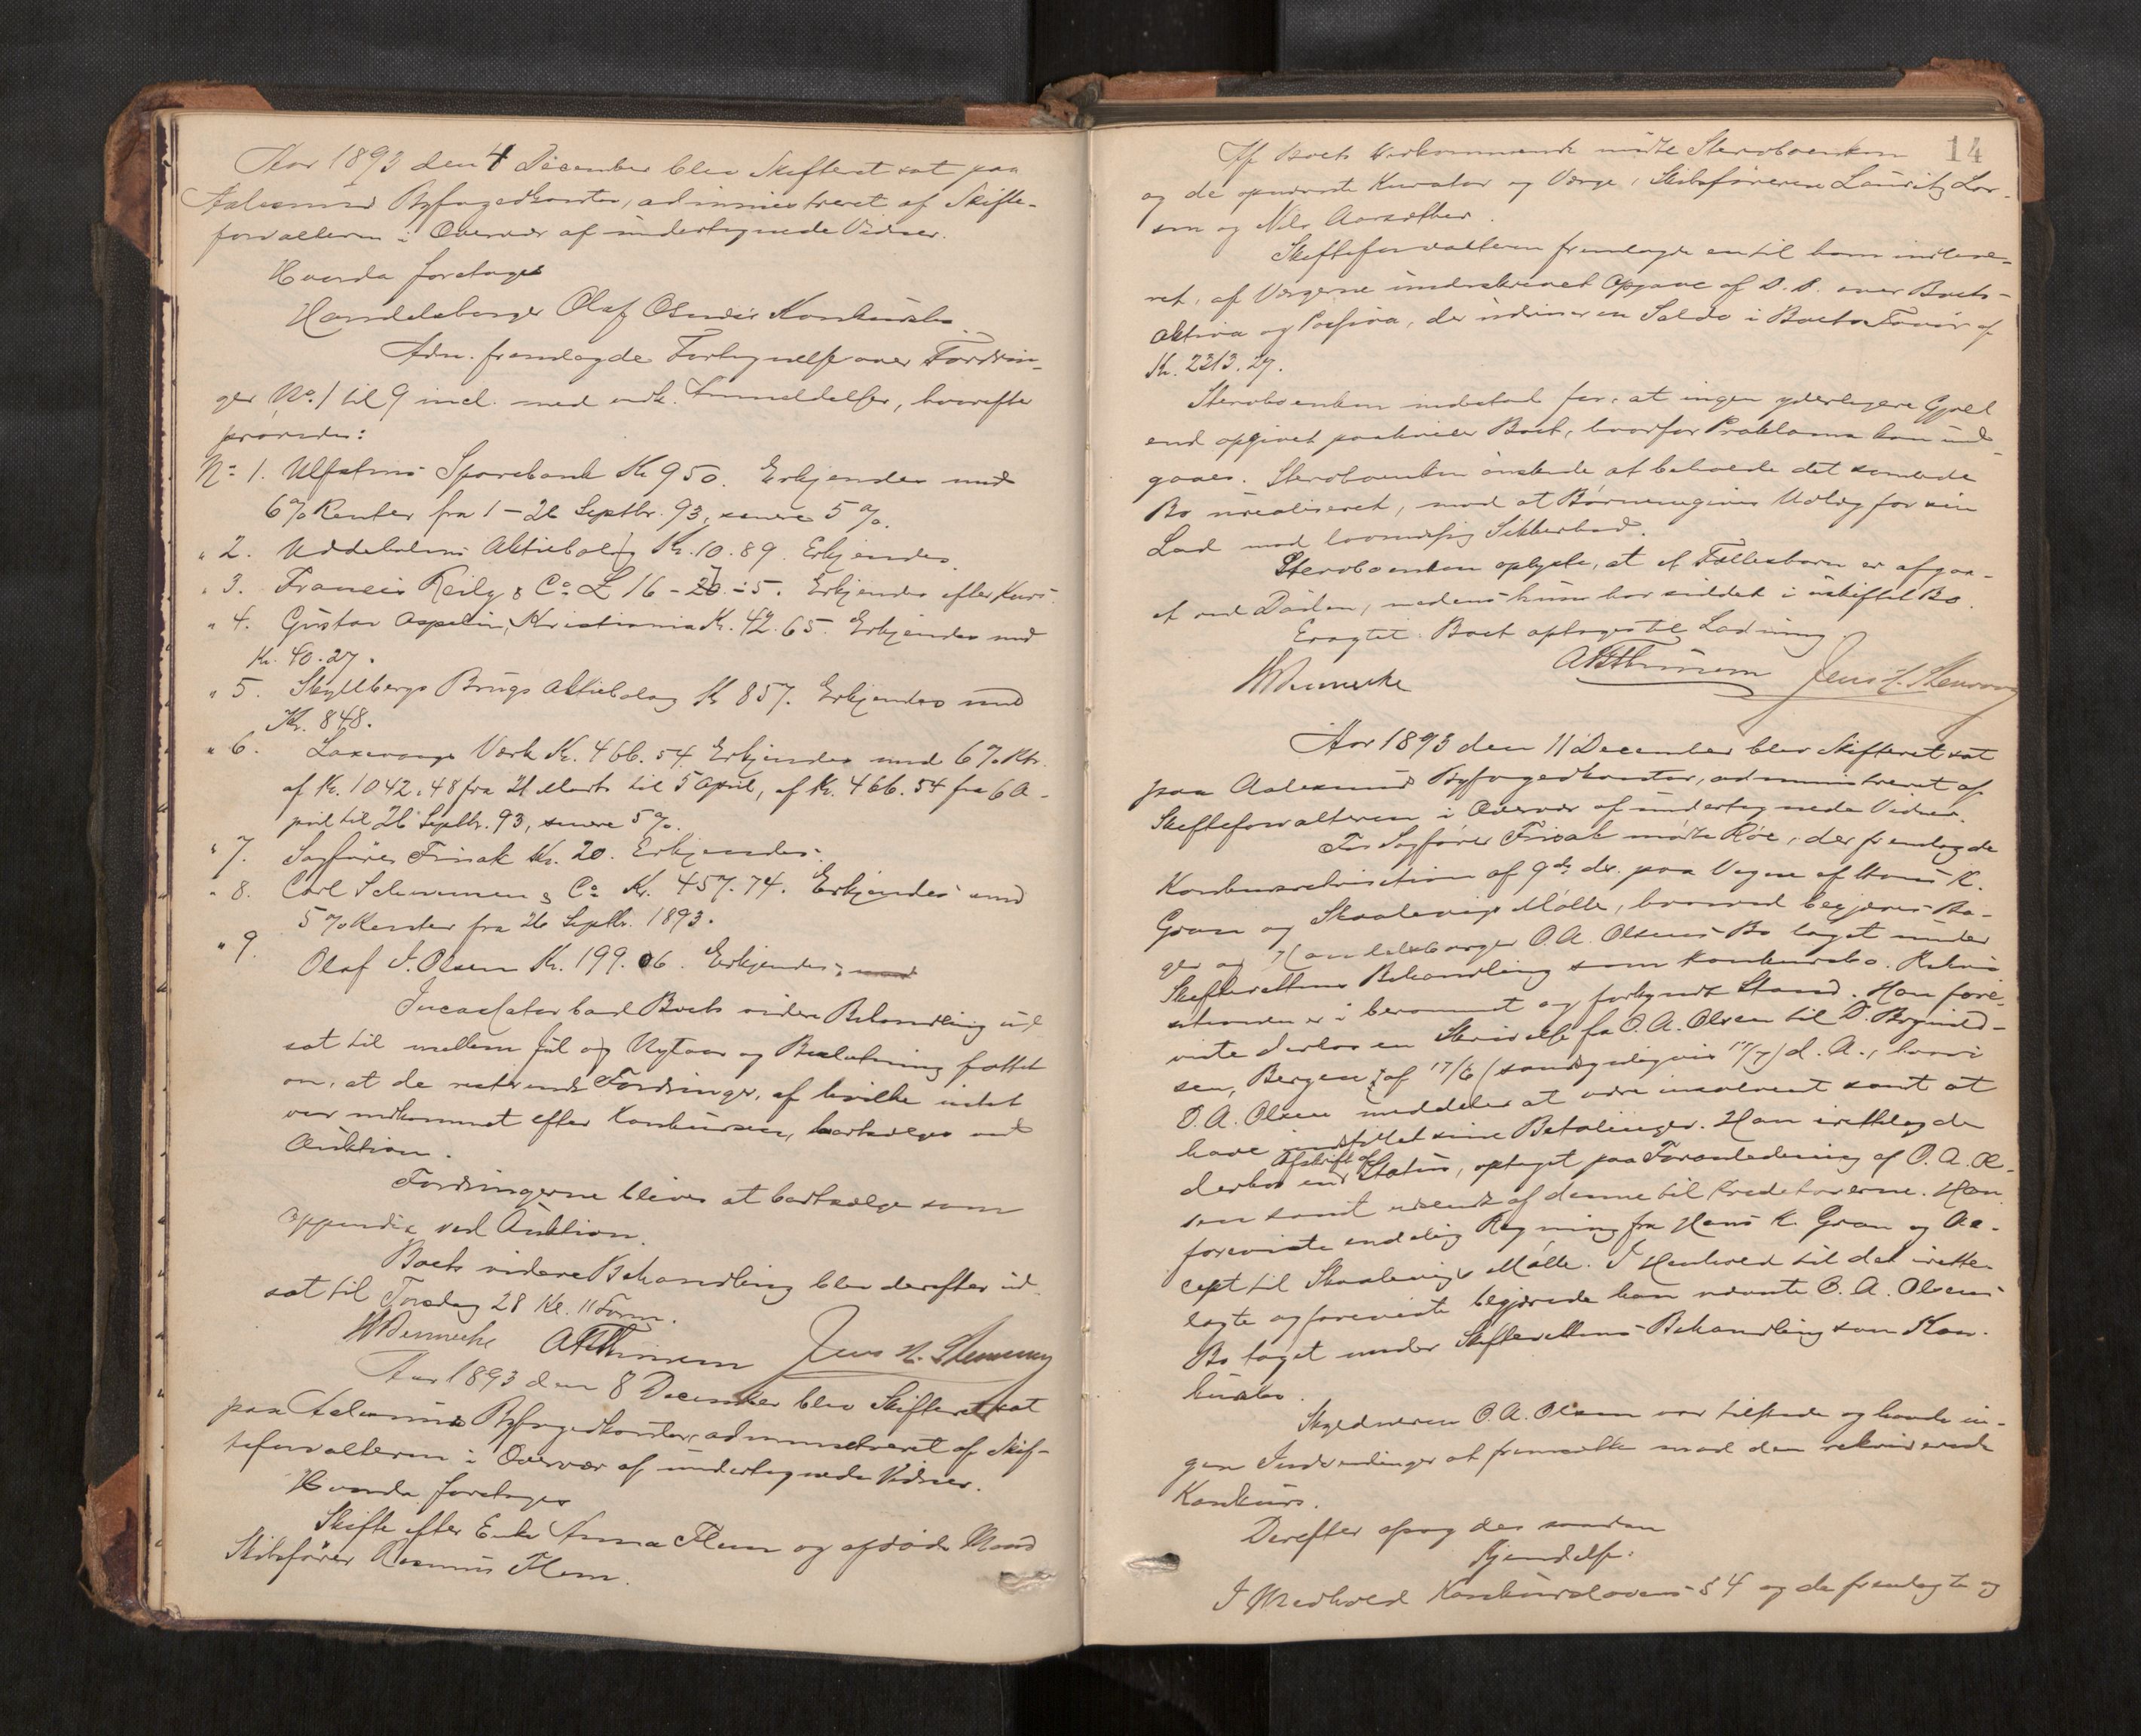 Aar 1893 den 4 December blev Skifteret sat paa
Aalesunds Byfogedkontor, administreret af Skifte-
forvalteren i Overvær af undertegnede Vidner.
Hvorda foretoges
Handelsborger Olaf Olsens Konkursbo.
Adm. fremlagde Fortegnelse over Fordrin-
ger No. 1 til 9 incl. med Anmeldelser, hvorefter
prøvedes:
No 1. Ulfstens Sparebank Kr 950. Erkjendes med
6% Renter fra 1-26 Septbr. 93, senere 5%.
" 2. Uddeholms Aktiebolag Kr. 10.89. Erkjendes.
" 3. Francis Reily & Co £ 16 - - 5. Erkjendes efter Kurs.
" 4. Gustav Aspelin, Kristiania Kr. 42.65. Erkjendes med
Kr. 40.27.
" 5. Skyllbergs Brugs Aktiebolag Kr 857. Erkjendes med
Kr. 848.
" 6. Laxevaags Værk Kr. 466.54. Erkjendes med 6% Rtr.
af Kr. 1042.48 fra 21 Marts til 5 April, af Kr. 466.54 fra 6 A-
pril til 26 Septbr. 93, senere 5%.
" 7. Sagfører Frisak Kr. 20. Erkjendes.
" 8. Carl & Co Kr. 457.74. Erkjendes med
5% Renter fra 26 Septbr. 1893.
" 9. Olaf J. Olsen Kr. 199.06. Erkjendes, med
Incassator bad Boets videre Behandling ud-
sat til mellem Jul og Nytaar og Beslutning fattet
om, at de resterende Fordringer, af hvilke intet
var indkommet efter Konkursen, bortsælges ved
Auktion.
Fordringerne bliver at bortsælge som
appendix ved Auktion.
Boets videre Behandling blev derefter ud-
sat til Torsdag 28 Kl. 11 Form.
WBennecke Jens N. Stenvaag
Aar 1893 den 8 December blev Skifteret sat
paa Aalesunds Byfogedkontor, administreret af Skif-
teforvalteren i Overvær af undertegnede Vidner.
Hvorda foretoges
Skifte efter Enke Anna Flem og afdøde Mand
Skibsfører Rasmus Flem.
14
Af Boets Vedkommende mødte Stervboenken
og de opnævnte Kurator og Værge, Skibsførerne Lauritz Lar-
sen og Nils Aarsæther.
Skifteforvalteren fremlagde en til ham indleve-
ret, af Værgerne underskrevet Opgave af D. D. over Boets
Aktiva og Passiva, der udviser en Saldo i Boets Favør af
Kr. 2313.27.
Stervboenken indestod for, at ingen yderligere Gjæld
end opgivet paahviler Boet, hvorfor Proklama kan und-
gaaes. Stervboenken ønskede at beholde det samlede
Bo urealiseret, mod at Børnene gives Udlæg for sin
Lod mod lovmæssig Sikkerhed.
Stervboenken oplyste, at et Fællesbarn er afgaa-
et ved Døden, medens hun har siddet i uskiftet Bo.
Eragtet: Boet optages til Lodning.
WBennecke Jens N. Stenvaag
Aar 1893 den 11 December blev Skifteret sat
paa Aalesunds Byfogedkontor, administreret af
Skifteforvalteren i Overvær af undertegnede Vidner.
For Sagfører Frisak mødte Røe, der fremlagde
Konkursrekvisition af 9de ds. paa Vegne af Hans K.
Gran og Skaalevigs Mølle, hvorved begjæres Ba-
ger og Handelsborger O. A. Olsens Bo taget under
Skifterettens Behandling som Konkursbo. Rekvi-
sitionen er i berammet og forkyndt Stand. Han fore-
viste derhos en Skrivelse fra O. A. Olsen til D. Brynild-
sen, Bergen, af 17/6 (sandsynligvis 17/7) d. A., hvori
O. A. Olsen meddeler at være insolvent samt at
have indstillet sine Betalinger. Han irettelagde
derhos en Afskrift af Status, optaget paa Foranledning af O. A. Ol-
sen samt udsendt af denne til Kreditorerne. Han
foreviste endelig Regning fra Hans K. Gran og Ac-
cept til Skaalevigs Mølle. I Henhold til det irette-
lagte og foreviste begjærede han nævnte O. A. Olsens
Bo taget under Skifterettens Behandling som Kon-
kursbo.
Skyldneren O. A. Olsen var tilstede og havde in-
gen Indvendinger at fremsætte mod den rekvirerede
Konkurs.
Derefter afsagdes saadan
Kjendelse:
I Medhold Konkurslovens § 4 og de fremlagte og